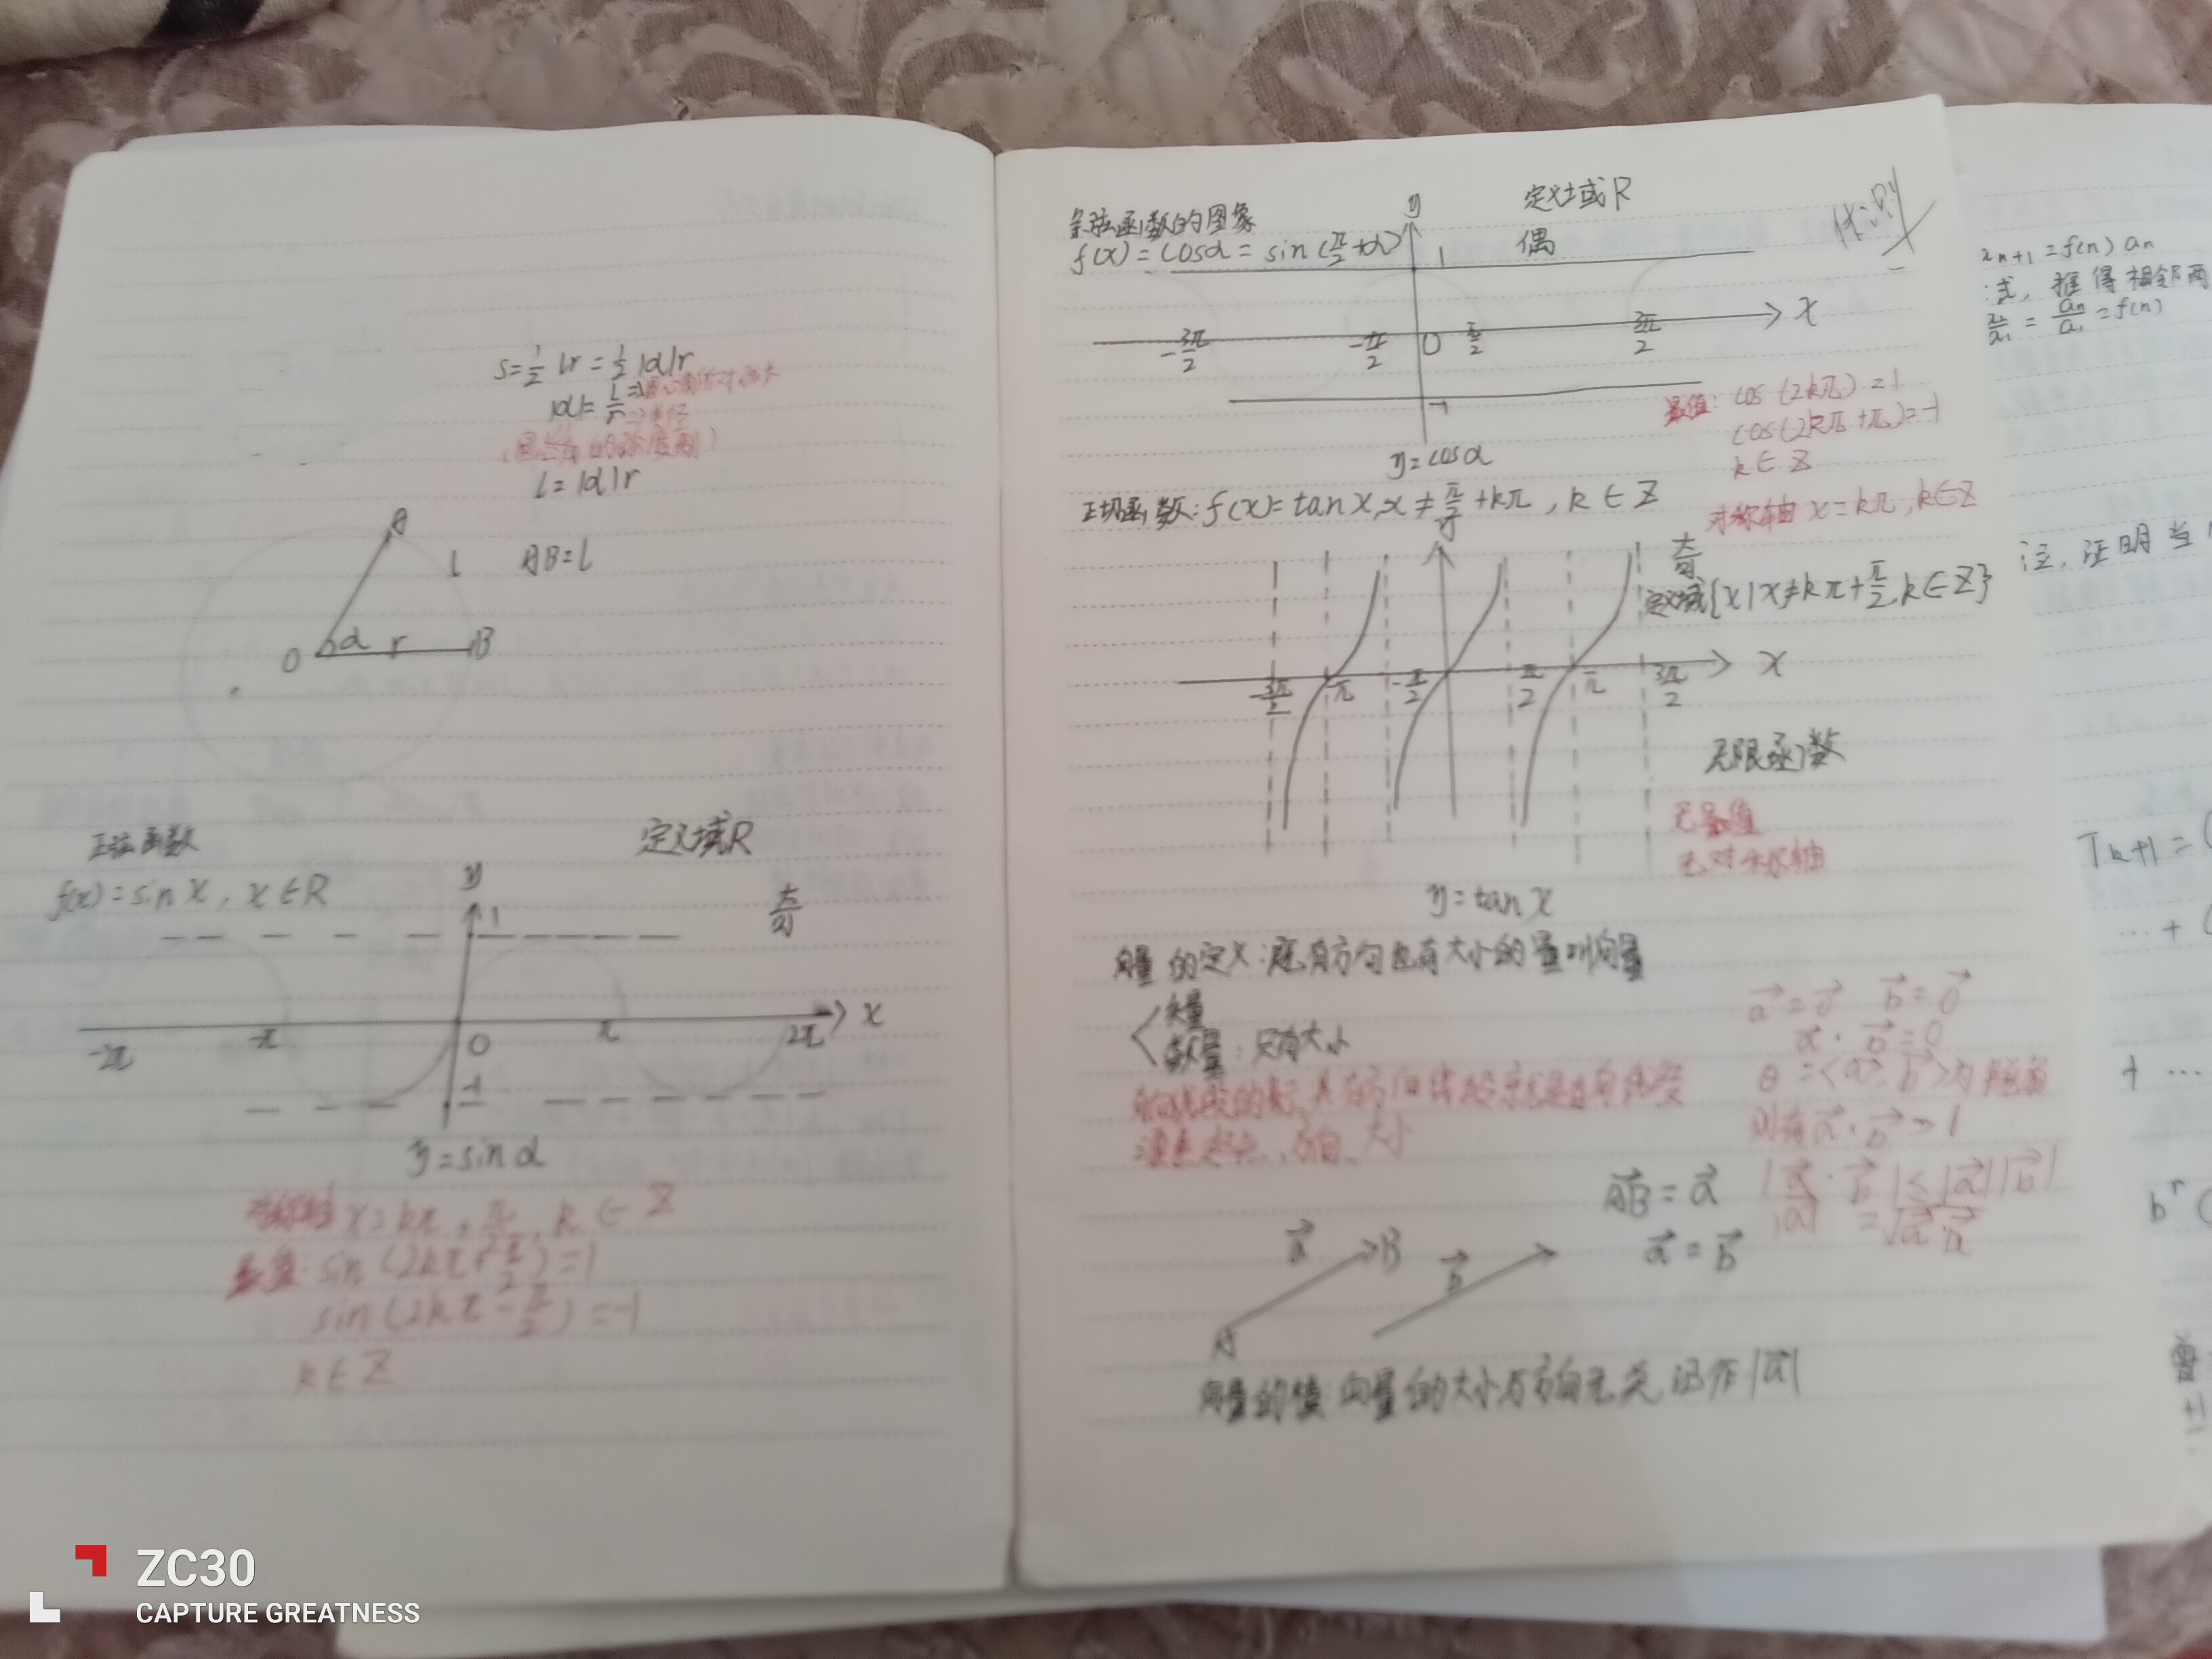 S=½lr=½|α|r
|α|=l/r⇒圆心角所对弧长
⇒半径
(圆心角的弧度数)
l=|α|r
A
l
AB=l
O α r B
正弦函数
定义域R
f(x)=sin x, x∈R
y
奇
1
-2π -π O π 2π x
-1
y=sin α
对称轴 x=kπ+π/2, k∈Z
最值: sin(2kπ+π/2)=1
sin(2kπ-π/2)=-1
k∈Z
余弦函数的图象
y
定义域R
f(x)=cosα=sin(π/2+α)
1
偶
-3π/2 -π/2 O π/2 3π/2 x
-1
y=cosα
最值: cos(2kπ)=1
cos(2kπ+π)=-1
k∈Z
对称轴 x=kπ, k∈Z
正切函数: f(x)=tan x, x≠π/2+kπ, k∈Z
y
奇
定义域{x|x≠kπ+π/2, k∈Z}
-3π/2 -π -π/2 π/2 π 3π/2 x
无限函数
无最值
无对称轴
y=tan x
向量的定义:既有方向也有大小的量叫向量
矢量
数量:只有大小
起点、方向、大小
a⃗=0⃗ b⃗=0⃗
a⃗·b⃗=0
θ=<a⃗,b⃗>为
则有a⃗·b⃗>1
|a⃗·b⃗|≤|a⃗||b⃗|
|a⃗|=√a⃗·a⃗
AB⃗=a⃗
a⃗=b⃗
a⃗ B b⃗
A
向量的值:向量的大小与方向无关 记作|a⃗|
aₙ₊₁=f(n)aₙ
式, 推得相邻两
=aₙ/a₁=f(n)
注, 证明当
Tₖ₊₁=(
…+(
+…
bʳ(
ZC30
CAPTURE GREATNESS